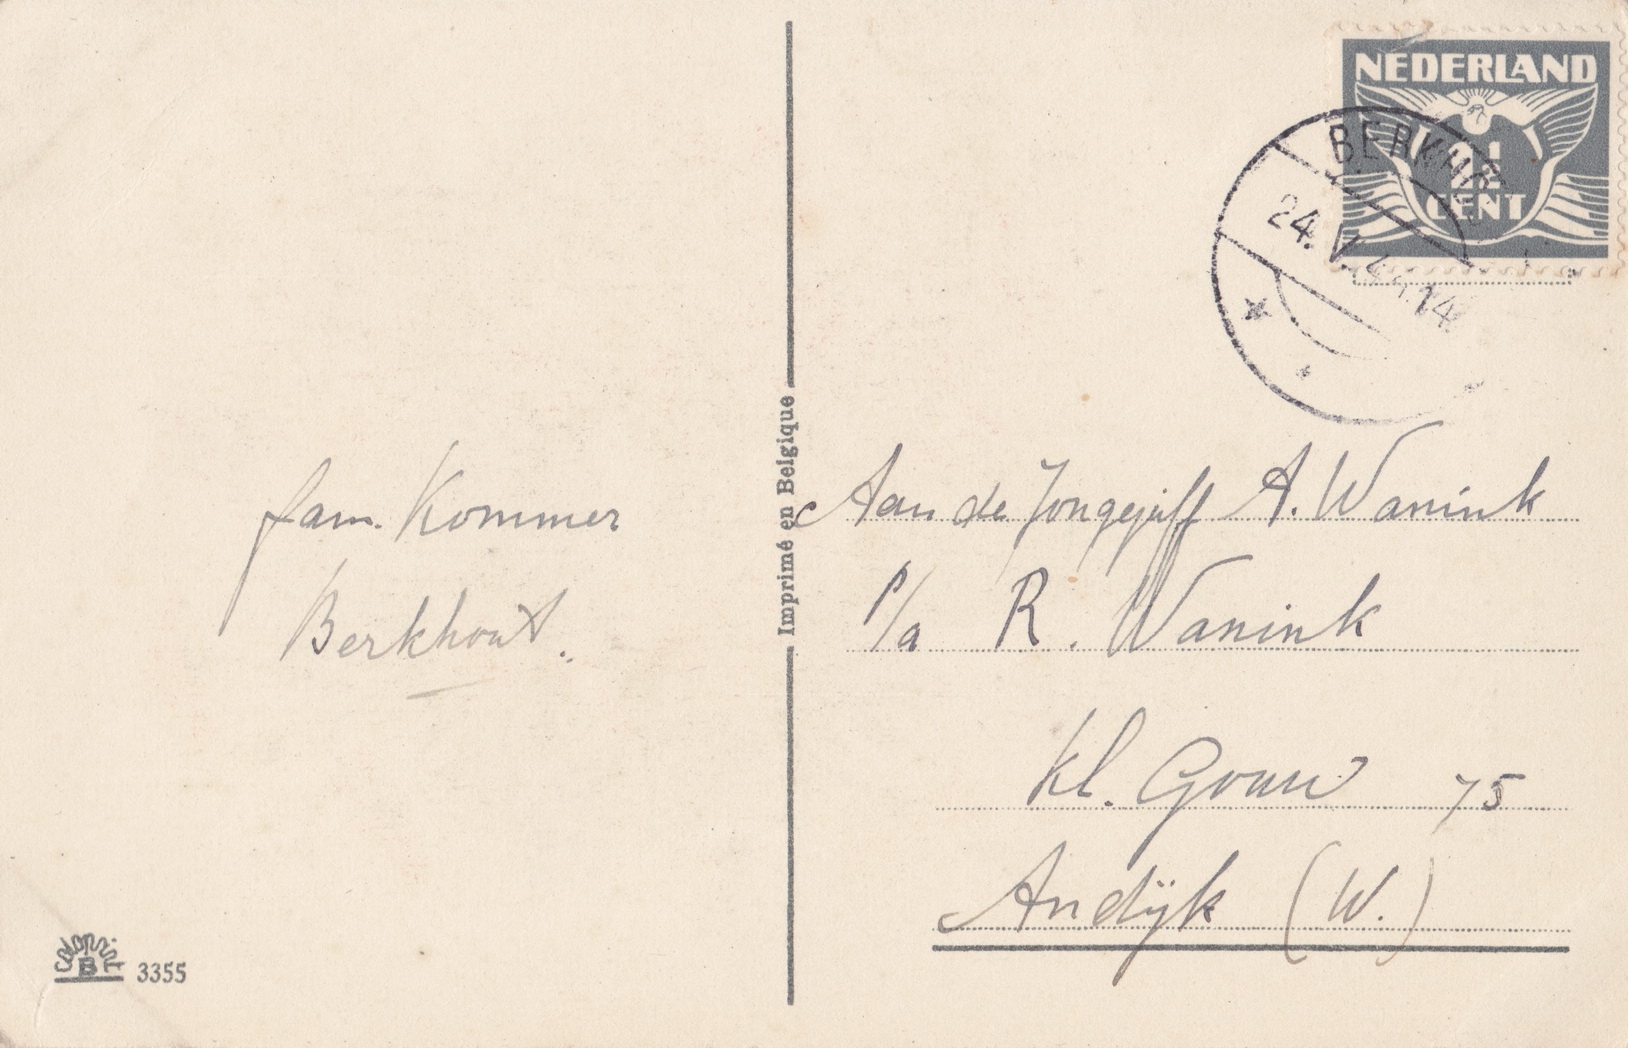 NEDERLAND
CENT
BERKHOUT
24.
14
Imprimé en Belgique
fam. Kommer
Berkhout.
Aan de Jongejuff A. Wanink
P/a R. Wanink
Kl. Gouw 75
Andijk (W.)
Colorprint
B 3355